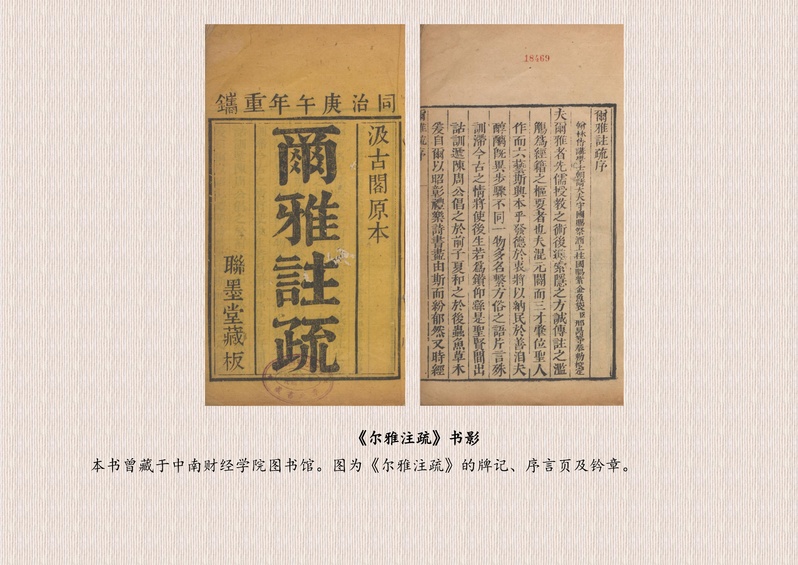 同治庚午年重鐫
汲古閣原本
爾雅註疏
聯墨堂藏板
18469
爾雅註疏序
翰林侍講學士朝請大夫守國子祭酒上柱國賜紫金魚袋臣邢昺等奉勅校定
夫爾雅者先儒授教之術後進索隱之方誠傳註之濫
觴為經籍之樞要者也夫混元闢而三才肇位聖人
作而六藝斯興本乎發德於衷將以納民於善洎夫
醇醨既異步驟不同一物多名繫方俗之語片言殊
訓滯今古之情將使後生若為鑽仰繇是聖賢間出
詁訓遞陳周公倡之於前子夏和之於後蟲魚草木
爰自爾以昭彰禮樂詩書盡由斯而紛郁然又時經
爾雅註疏序
《尔雅注疏》书影
本书曾藏于中南财经学院图书馆。图为《尔雅注疏》的牌记、序言页及钤章。